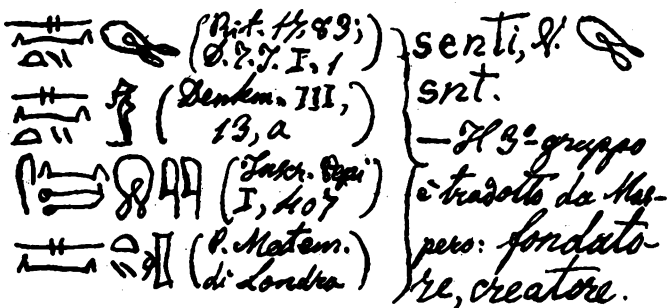 (Rit. 17, 83;
D. T. J. I, 1)
(Denkm. III,
13, a)
(Inscr. Pepi
I, 407)
(P. Matem.
di Londra)
senti, V.
snt.
— Il 3º gruppo
è tradotto da Mas-
pero: fondato-
re, creatore.